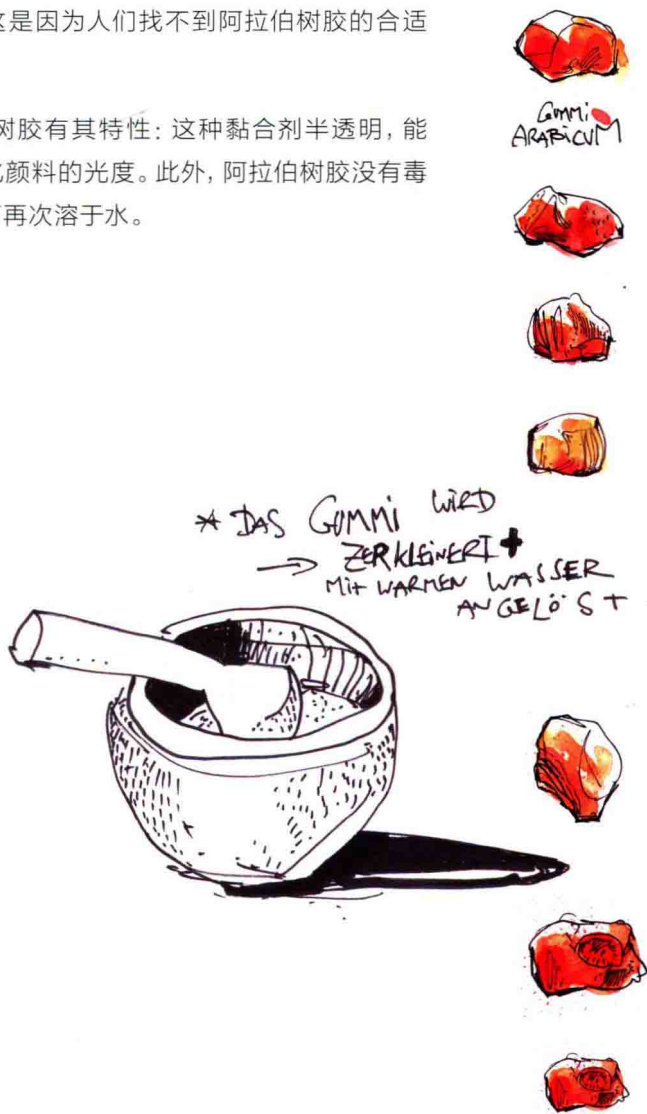 这是因为人们找不到阿拉伯树胶的合适
树胶有其特性：这种黏合剂半透明，能
颜料的光度。此外，阿拉伯树胶没有毒
再次溶于水。
GUMMI
ARABICUM
* DAS GUMMI WIRD
→ ZERKLEINERT +
MIT WARMEN WASSER
ANGELÖST